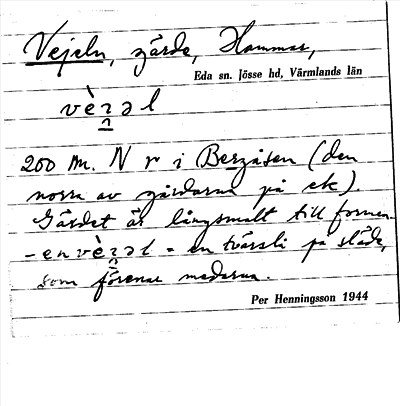 Vejeln, gärde, Hammar,
Eda sn. Jösse hd, Värmlands län
vèɿəl
200 m. N r i Bergåsen (den
norra av gärdarna på ek).
Gärdet är långsmalt till formen.
- en vèɿəl = en tvärsli på släde,
som förenar medarna.
Per Henningsson 1944